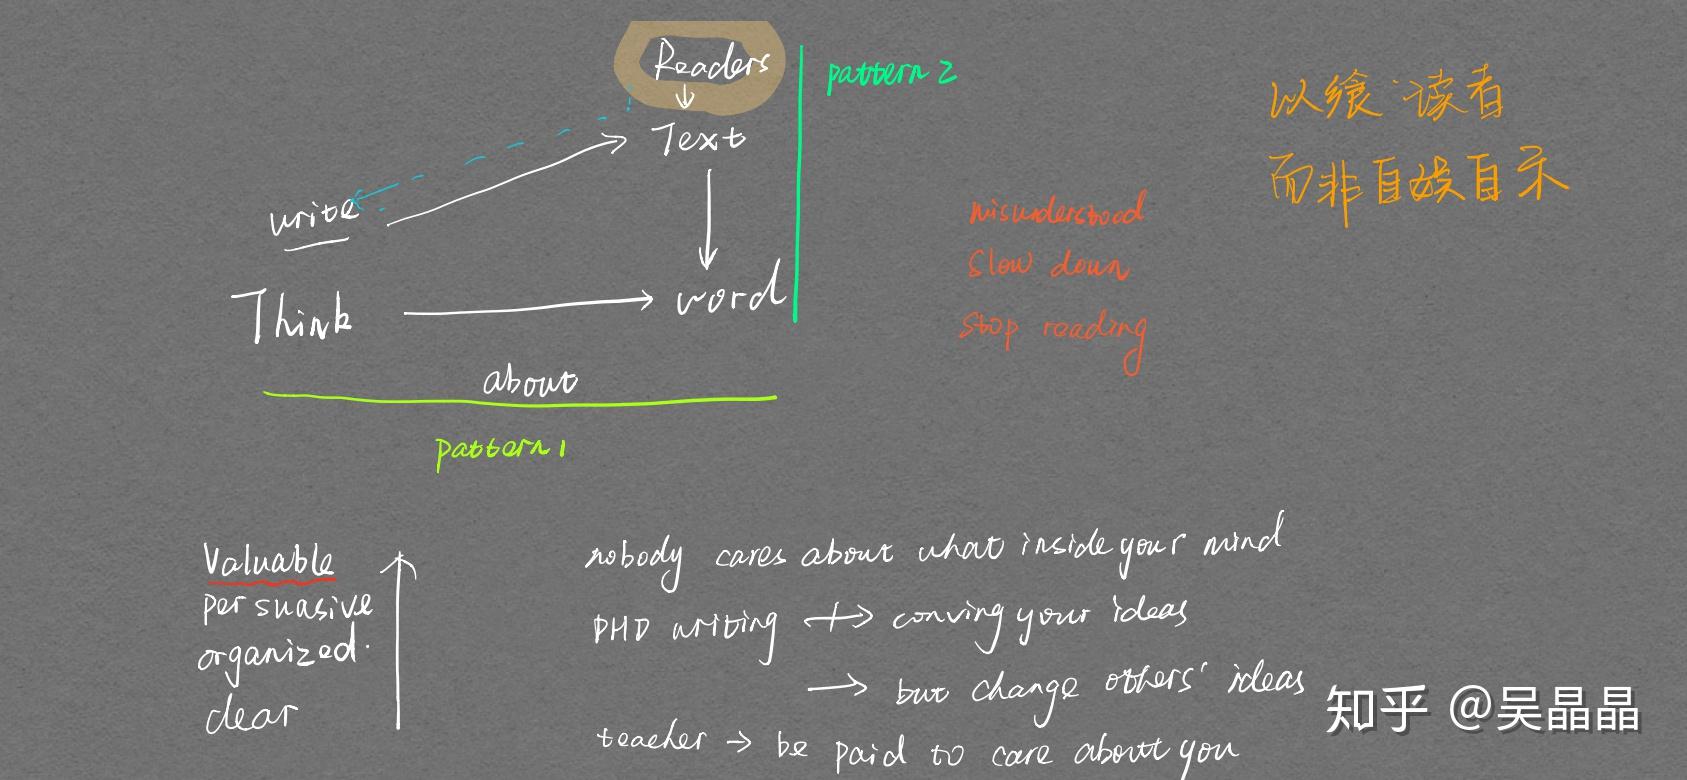 Readers
Text
write
Think
word
about
pattern 1
pattern 2
misunderstood
slow down
stop reading
以飨读者
而非自娱自乐
Valuable
persuasive
organized.
clear
nobody cares about what inside your mind
PHD writing conving your ideas
but change others' ideas
teacher → be paid to care about you
知乎 @吴晶晶